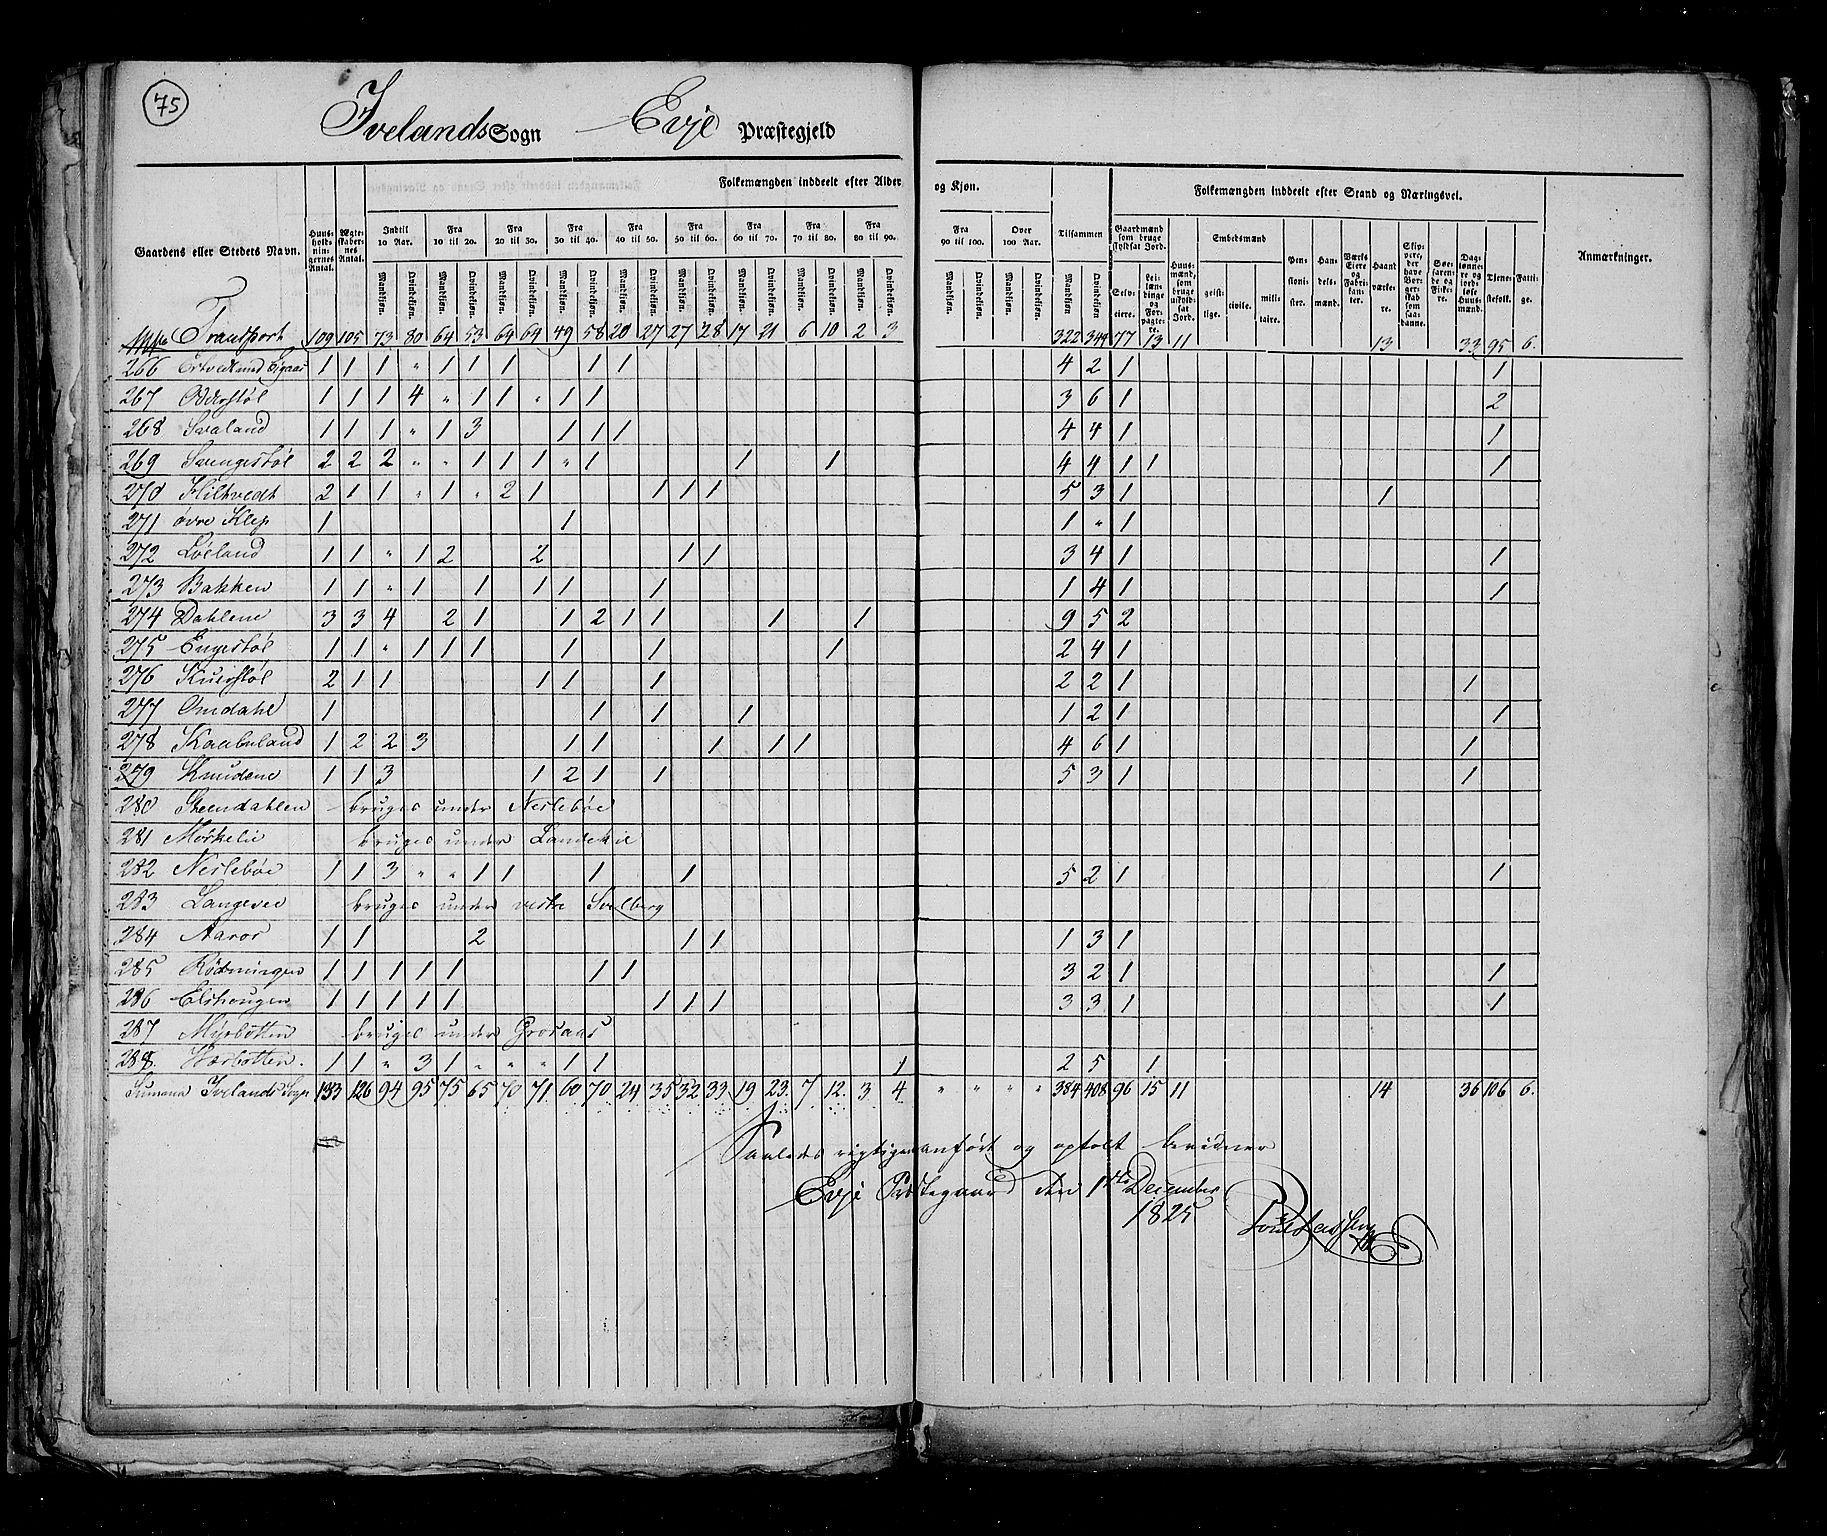 75
Ivelands Sogn Evje Præstegjeld
Folkemængden inddeelt efter Alder og Kjøn.
Folkemængden inddeelt efter Stand og Næringsvei.
Gaardens eller Stedets Navn.
Huusholdningernes Antal.
Ægteskabernes Antal.
Indtil 10 Aar.
Fra 10 til 20.
Fra 20 til 30.
Fra 30 til 40.
Fra 40 til 50.
Fra 50 til 60.
Fra 60 til 70.
Fra 70 til 80.
Fra 80 til 90.
Fra 90 til 100.
Over 100 Aar.
Tilsammen
Mandkjøn. Qvindekjøn.
Gaardmænd som bruge skyldsat Jord.
Selveiere.
Leilændinge og Forpagtere.
Huusmænd, som bruge uskyldsat Jord.
Embedsmænd
geistlige.
civile.
militaire.
Pensionister.
Handelsmænd.
Værks Eiere og Fabrikanter.
Haandværkere.
Skippere, der have Borgerskab som saadanne.
Søefarende og Fiskere.
Dagлønnere og jordløse Huusmænd.
Tjenestefolk.
Fattige.
Anmærkninger.
Transport 109 105 73 80 64 53 64 64 49 58 20 27 27 28 17 21 6 10 2 3 322 344 77 13 11 13 33 95 6.
266 1 1 1 " 1 1 1 1 1 4 2 1 1
267 1 1 1 4 " 1 1 " 1 1 3 6 1 2
268 Svaland 1 1 1 " 1 3 1 1 1 4 4 1 1
269 Svengestøl 2 2 2 " " 1 1 1 " 1 1 1 4 4 1 1 1
270 Hiltvedt 2 1 1 " 1 " 2 1 1 1 1 5 3 1 1
271 øvre Klep 1 1 1 " 1
272 Løeland 1 1 " 1 2 2 1 1 3 4 1 1
273 Bakken 1 1 " 1 1 1 1 1 1 4 1 1
274 Dahlene 3 3 4 2 1 1 2 1 1 1 1 9 5 2
275 Engestøl 1 1 " 1 1 1 1 1 1 2 4 1
276 2 1 1 1 1 1 2 2 1 1
277 Omdahl 1 1 1 1 1 2 1 1
278 Kaabuland 1 2 2 3 1 1 1 1 1 4 6 1 1
279 Knudene 1 1 3 1 2 1 1 5 3 1 1
280 Steendahlen bruges under Neslebøe
281 Mørkelie bruges under
282 Neslebøe 1 1 3 " " 1 1 1 1 5 2 1 1
283 Langevei bruges under vestre
284 Aaros 1 1 2 1 1 1 3 1
285 Rødningen 1 1 1 1 1 1 1 3 2 1 1
286 Elshougen 1 1 1 1 1 1 1 1 3 3 1 1
287 Myrbotten bruges under Grosaas
288. 1 1 " 3 1 " " " 1 1 1 2 5 1
Summa Ivelands Sogn 133 126 94 95 75 65 70 71 60 70 24 35 32 33 19 23. 7 12. 3 4 " " " " 384 408 96 15 11 14 36 106 6.
Saaledes rigtigen anført og optalt bevidner
Evje Præstegaard den 1ste December
1825